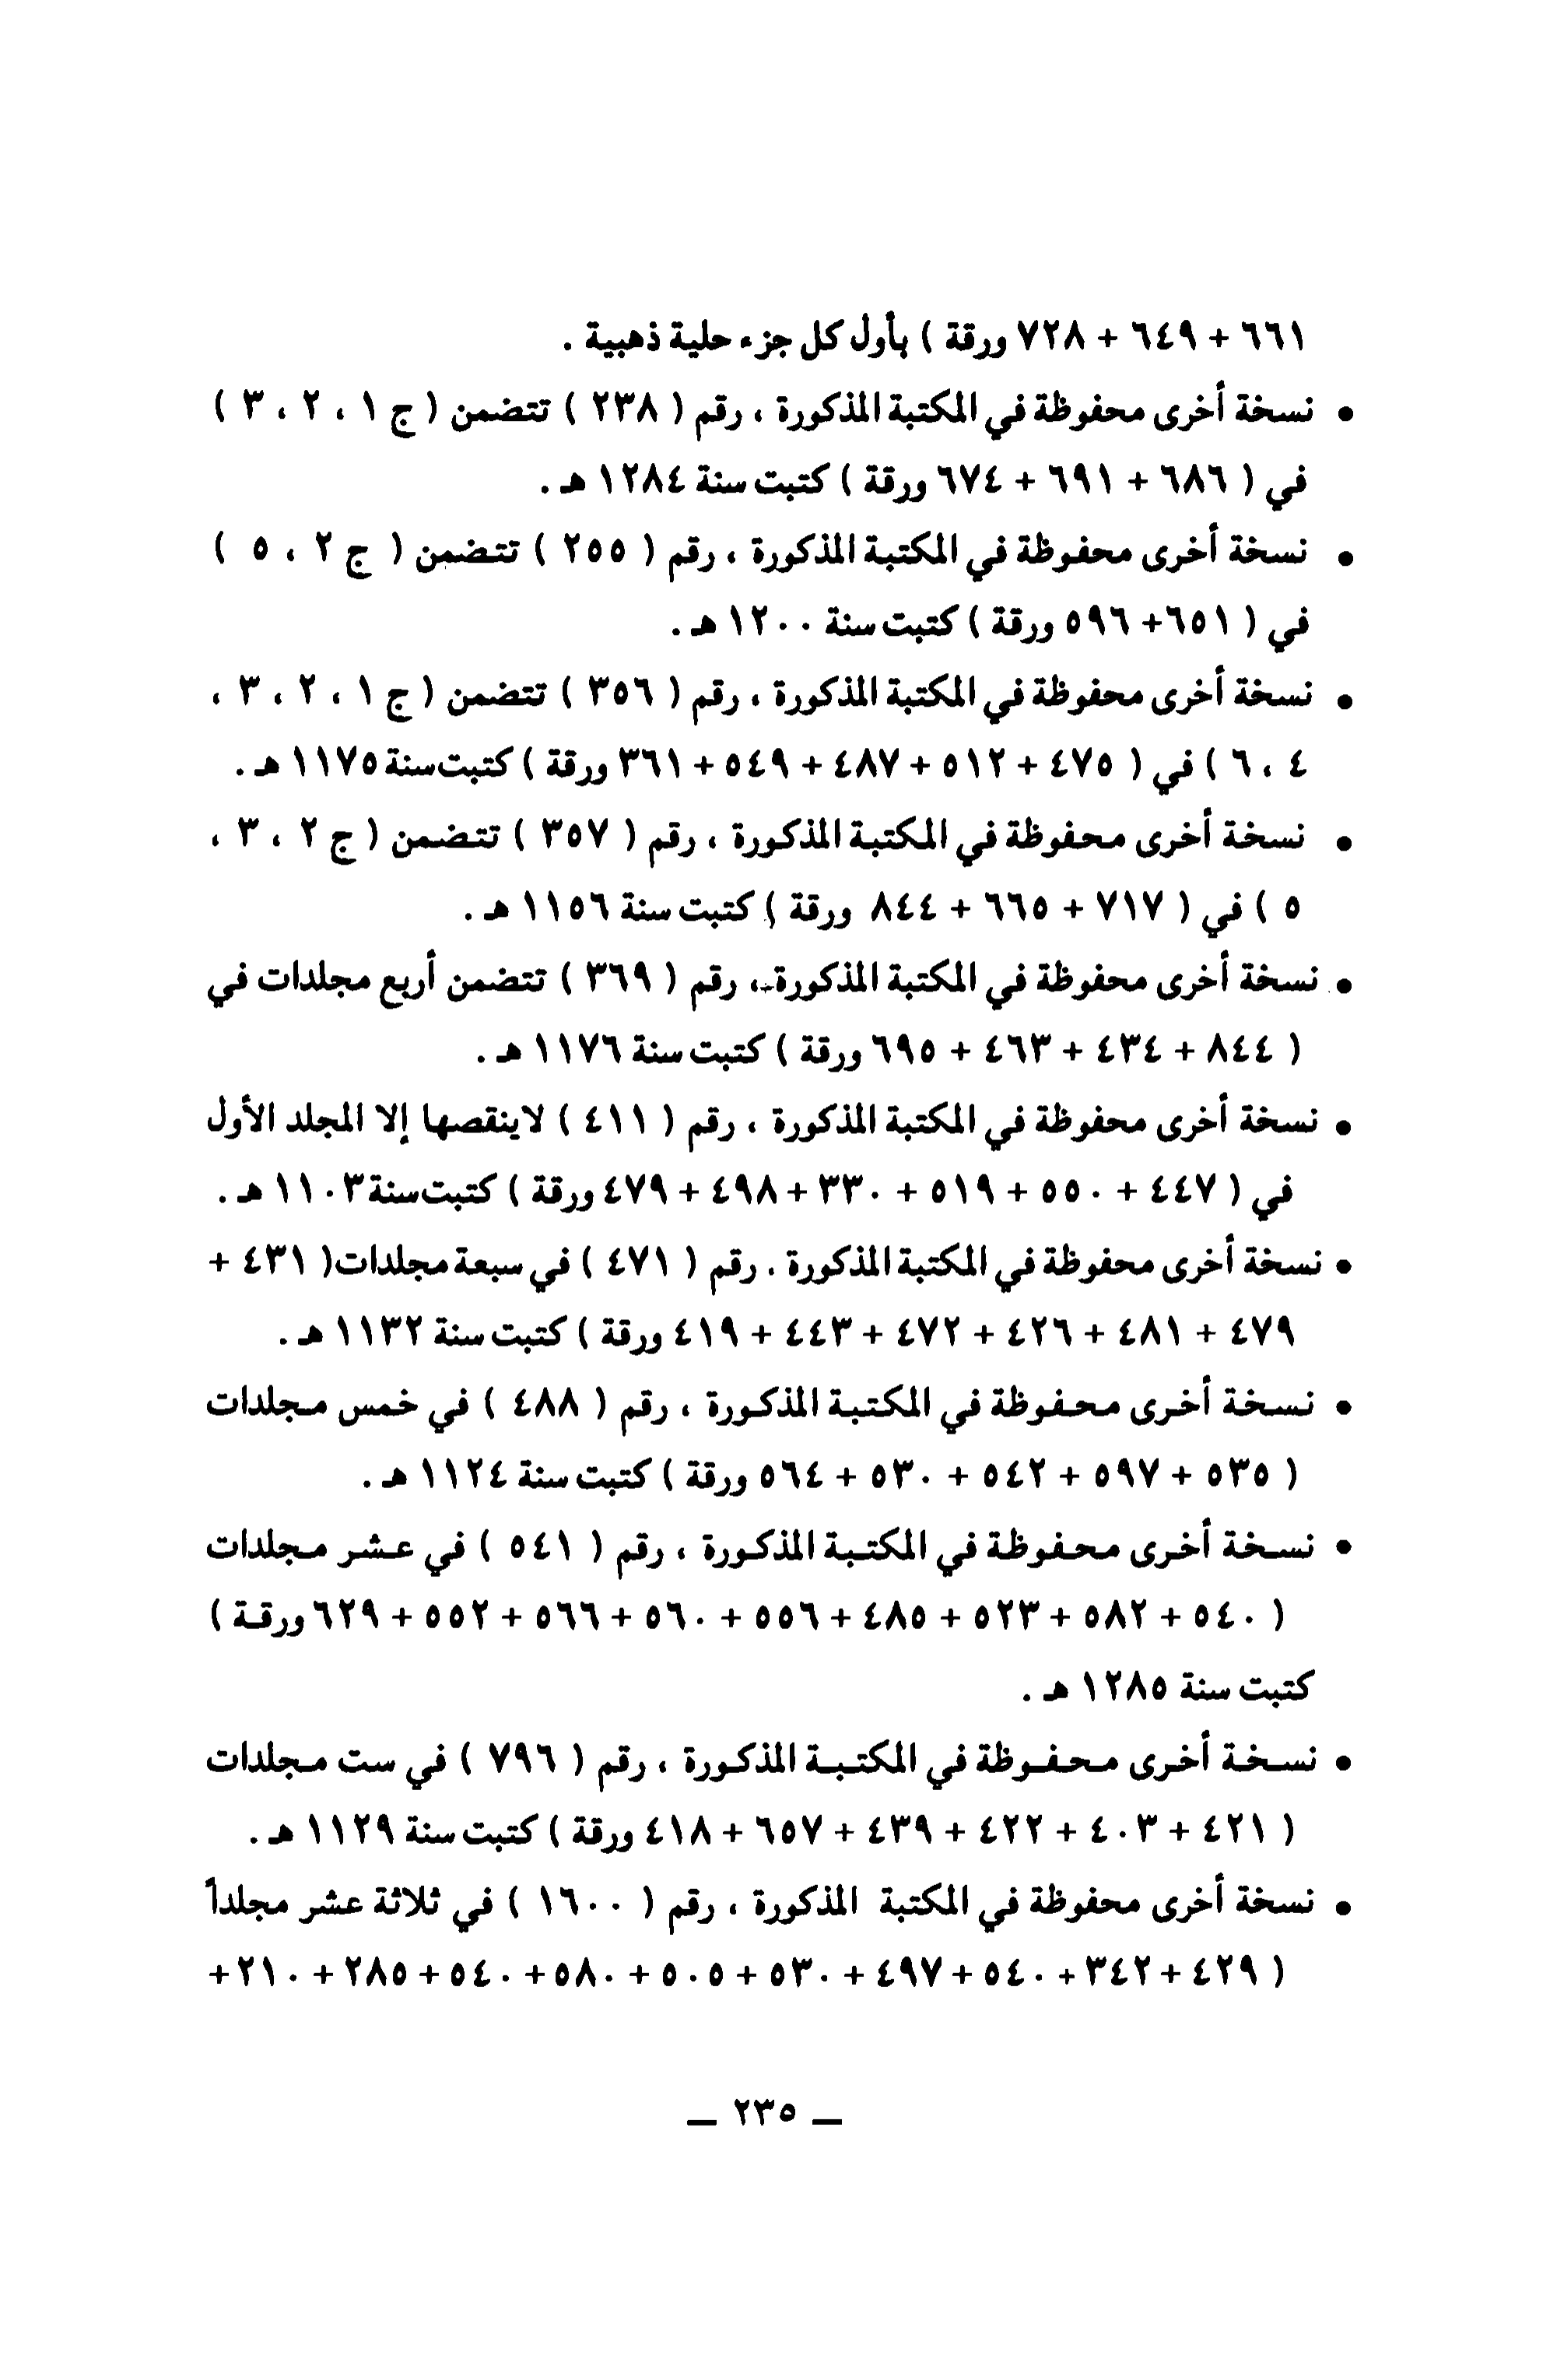 ٦٦١ + ٦٤٩ + ٧٢٨ ورقة ) بأول كل جزء حلية ذهبية .
• نسخة أخرى محفوظة في المكتبة المذكورة ، رقم ( ٢٣٨ ) تتضمن ( ج ١ ، ٢ ، ٣ )
في ( ٦٨٦ + ٦٩١ + ٦٧٤ ورقة ) كتبت سنة ١٢٨٤ هـ .
• نسخة أخرى محفوظة في المكتبة المذكورة ، رقم ( ٢٥٥ ) تتضمن ( ج ٢ ، ٥ )
في ( ٦٥١+ ٥٩٦ ورقة ) كتبت سنة ١٢٠٠ هـ .
• نسخة أخرى محفوظة في المكتبة المذكورة ، رقم ( ٣٥٦ ) تتضمن ( ج ١ ، ٢ ، ٣ ،
٤ ، ٦ ) في ( ٤٧٥ + ٥١٢ + ٤٨٧ + ٥٤٩ + ٣٦١ ورقة ) كتبت سنة ١١٧٥ هـ .
• نسخة أخرى محفوظة في المكتبة المذكورة ، رقم ( ٣٥٧ ) تتضمن ( ج ٢ ، ٣ ،
٥ ) في ( ٧١٧ + ٦٦٥ + ٨٤٤ ورقة ) كتبت سنة ١١٥٦ هـ .
• نسخة أخرى محفوظة في المكتبة المذكورة ، رقم ( ٣٦٩ ) تتضمن أربع مجلدات في
( ٨٤٤ + ٤٣٤ + ٤٦٣ + ٦٩٥ ورقة ) كتبت سنة ١١٧٦ هـ .
• نسخة أخرى محفوظة في المكتبة المذكورة ، رقم ( ٤١١ ) لاينقصها إلا المجلد الأول
في ( ٤٤٧ + ٥٥٠ + ٥١٩ + ٣٣٠ + ٤٩٨ + ٤٧٩ ورقة ) كتبت سنة ١١٠٣ هـ .
• نسخة أخرى محفوظة في المكتبة المذكورة . رقم ( ٤٧١ ) في سبعة مجلدات( ٤٣١ +
٤٧٩ + ٤٨١ + ٤٢٦ + ٤٧٢ + ٤٤٣ + ٤١٩ ورقة ) كتبت سنة ١١٣٢ هـ .
• نسخة أخرى محفوظة في المكتبة المذكورة ، رقم ( ٤٨٨ ) في خمس مجلدات
( ٥٣٥ + ٥٩٧ + ٥٤٢ + ٥٣٠ + ٥٦٤ ورقة ) كتبت سنة ١١٢٤ هـ .
• نسخة أخرى محفوظة في المكتبة المذكورة ، رقم ( ٥٤١ ) في عشر مجلدات
( ٥٤٠ + ٥٨٢ + ٥٢٣ + ٤٨٥ + ٥٥٦ + ٥٦٠ + ٥٦٦ + ٥٥٢ + ٦٢٩ ورقة )
كتبت سنة ١٢٨٥ هـ .
• نسخة أخرى محفوظة في المكتبة المذكورة ، رقم ( ٧٩٦ ) في ست مجلدات
( ٤٢١ + ٤٠٣ + ٤٢٢ + ٤٣٩ + ٦٥٧ + ٤١٨ ورقة ) كتبت سنة ١١٢٩ هـ .
• نسخة أخرى محفوظة في المكتبة المذكورة ، رقم ( ١٦٠٠ ) في ثلاثة عشر مجلداً
( ٤٢٩ + ٣٤٢ + ٥٤٠ + ٤٩٧ + ٥٣٠ + ٥٠٥ + ٥٨٠ + ٥٤٠ + ٢٨٥ + ٢١٠ +
— ٢٣٥ —